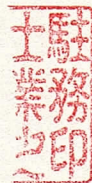 駐務印
士業之